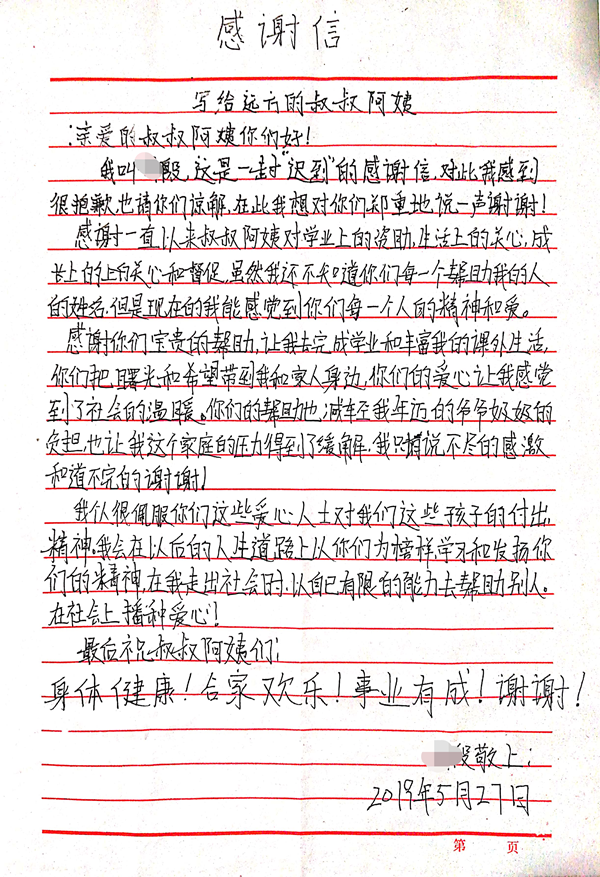 感谢信
写给远方的叔叔阿姨
亲爱的叔叔阿姨你们好！
我叫 毅,这是一封"迟到"的感谢信,对此我感到
很抱歉,也请你们谅解,在此我想对你们郑重地说一声谢谢！
感谢一直以来叔叔阿姨对学业上的资助,生活上的关心,成
长上的上的关心和督促,虽然我还不知道你们每一个帮助我的人
的姓名,但是现在的我能感觉到你们每一个人的精神和爱。
感谢你们宝贵的帮助,让我去完成学业和丰富我的课外生活,
你们把曙光和希望带到我和家人身边,你们的爱心让我感觉
到了社会的温暖。你们的帮助也减轻我年迈的爷爷奶奶的
负担,也让我这个家庭的压力得到了缓解,我只有说不尽的感激
和道不完的谢谢！
我认很佩服你们这些爱心人士对我们这些孩子的付出
精神。我会在以后的人生道路上以你们为榜样学习和发扬你
们的精神,在我走出社会时,以自己有限的能力去帮助别人。
在社会上播种爱心！
最后祝叔叔阿姨们:
身体健康！合家欢乐！事业有成！谢谢！
毅敬上:
2019年5月27日
第 页